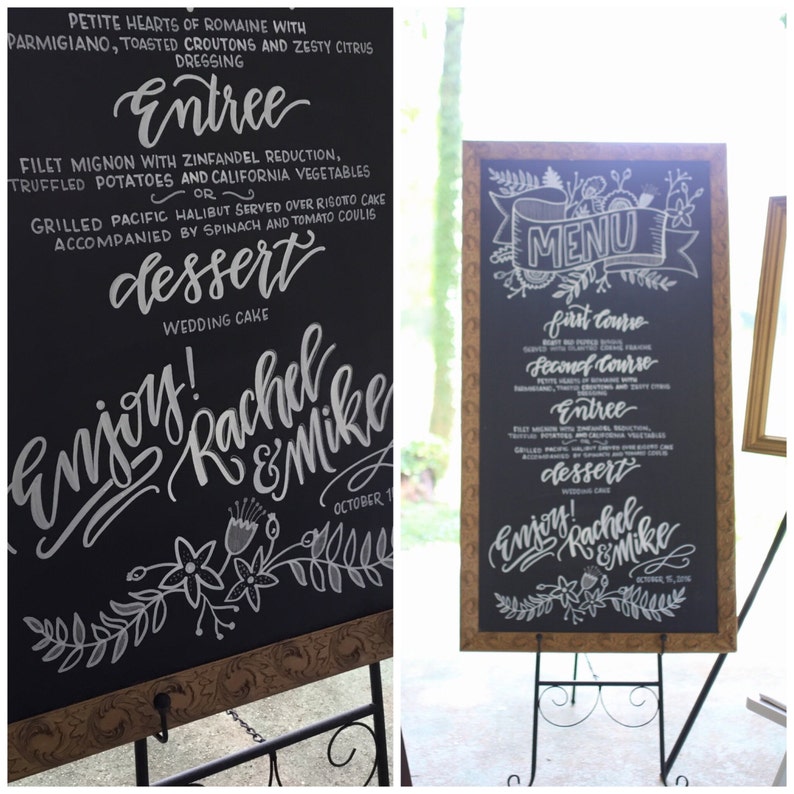 PETITE HEARTS OF ROMAINE WITH
PARMIGIANO, TOASTED CROUTONS AND ZESTY CITRUS
DRESSING
Entree
FILET MIGNON WITH ZINFANDEL REDUCTION,
TRUFFLED POTATOES AND CALIFORNIA VEGETABLES
OR
GRILLED PACIFIC HALIBUT SERVED OVER RISOTTO CAKE
ACCOMPANIED BY SPINACH AND TOMATO COULIS
dessert
WEDDING CAKE
Enjoy!
Rachel
& Mike
OCTOBER 1
MENU
First Course
SERVED WITH CILANTRO CREME FRAICHE
Second Course
PETITE HEARTS OF ROMAINE WITH
PARMIGIANO, TOASTED CROUTONS AND ZESTY CITRUS
DRESSING
Entree
FILET MIGNON WITH ZINFANDEL REDUCTION,
TRUFFLED POTATOES AND CALIFORNIA VEGETABLES
OR
GRILLED PACIFIC HALIBUT SERVED OVER RISOTTO CAKE
ACCOMPANIED BY SPINACH AND TOMATO COULIS
dessert
WEDDING CAKE
Enjoy!
Rachel
& Mike
OCTOBER 15, 2016